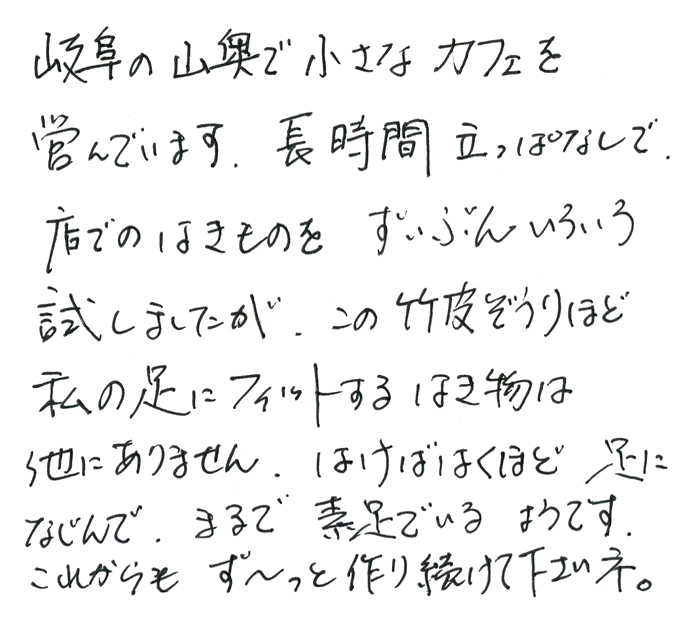 岐阜の山奥で小さなカフェを
営んでいます. 長時間立っぱなしで.
店でのはきものを ずいぶんいろいろ
試しましたが. この竹皮ぞうりほど
私の足にフィットするはき物は
他にありません. はけばはくほど 足に
なじんで. まるで 素足でいる ようです.
これからも ず〜っと作り続けて下さいネ。